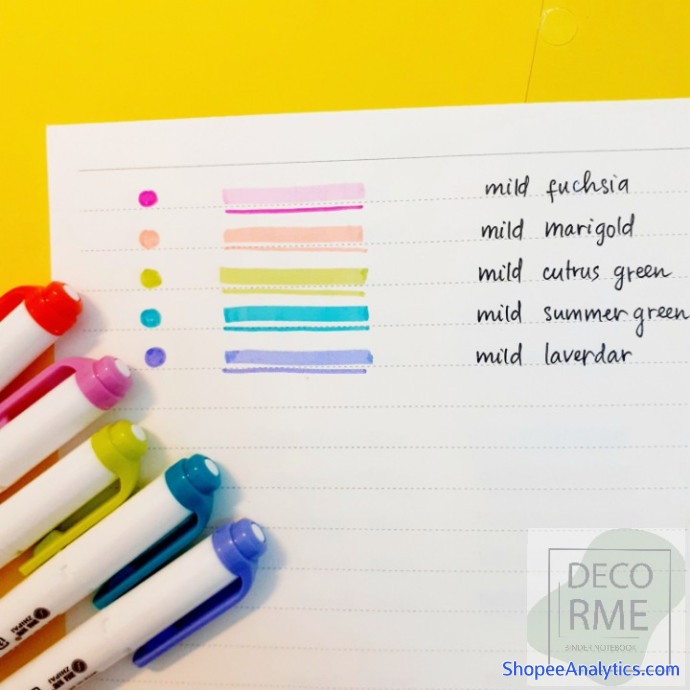 mild fuchsia
mild marigold
mild cutrus green
mild summer green
mild laverdar
DECO
RME
BINDER NOTEBOOK
ShopeeAnalytics.com
ZHIPAI
ZHIPAI